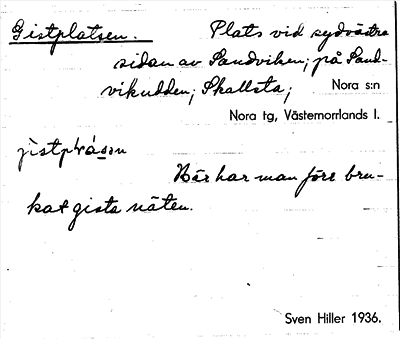 Gistplatsen. Plats vid sydvästra
sidan av Sandviken; på Sand-
vikudden; Skallsta; Nora s:n
Nora tg, Västernorrlands l.
Här har man förr bru-
kat gista näten.
Sven Hiller 1936.